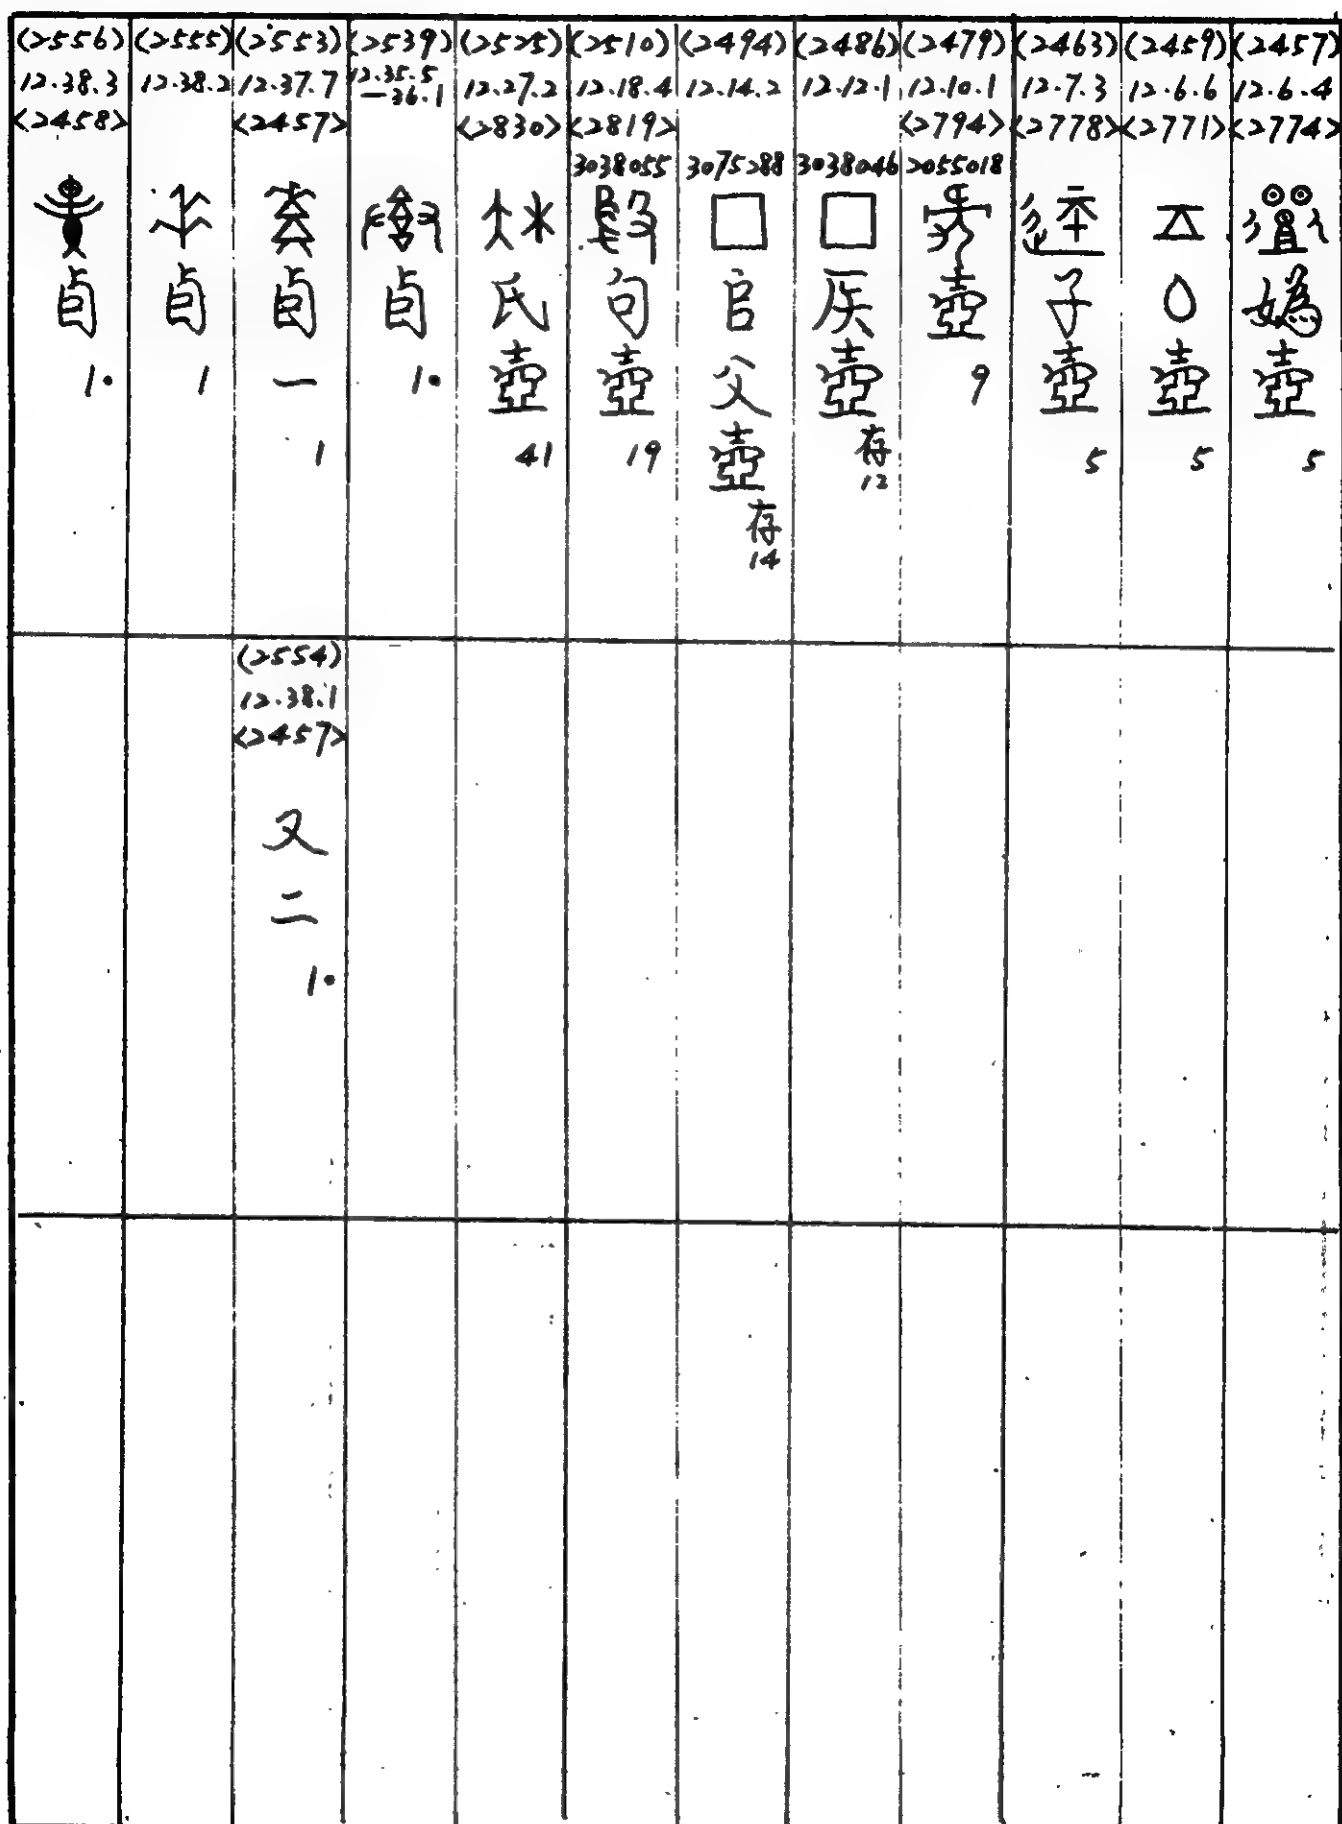 (2457)
12.6.4
<2774>
媯
壺
5
(2459)
12.6.6
<2771>
壺
5
(2463)
12.7.3
<2778>
子
壺
5
(2479)
12.10.1
<2794>
2055018
壺
9
(2486)
12.12.1
3038046
□
壺
存
12
(2494)
12.14.2
3075288
□
官
父
壺
存
14
(2510)
12.18.4
<2819>
3038055
句
壺
19
(2525)
12.27.2
<2830>
氏
壺
41
(2539)
12.35.5
—36.1
1•
(2553)
12.37.7
<2457>
一
1
(2554)
12.38.1
<2457>
又
二
1•
(2555)
12.38.2
1
(2556)
12.38.3
<2458>
1•